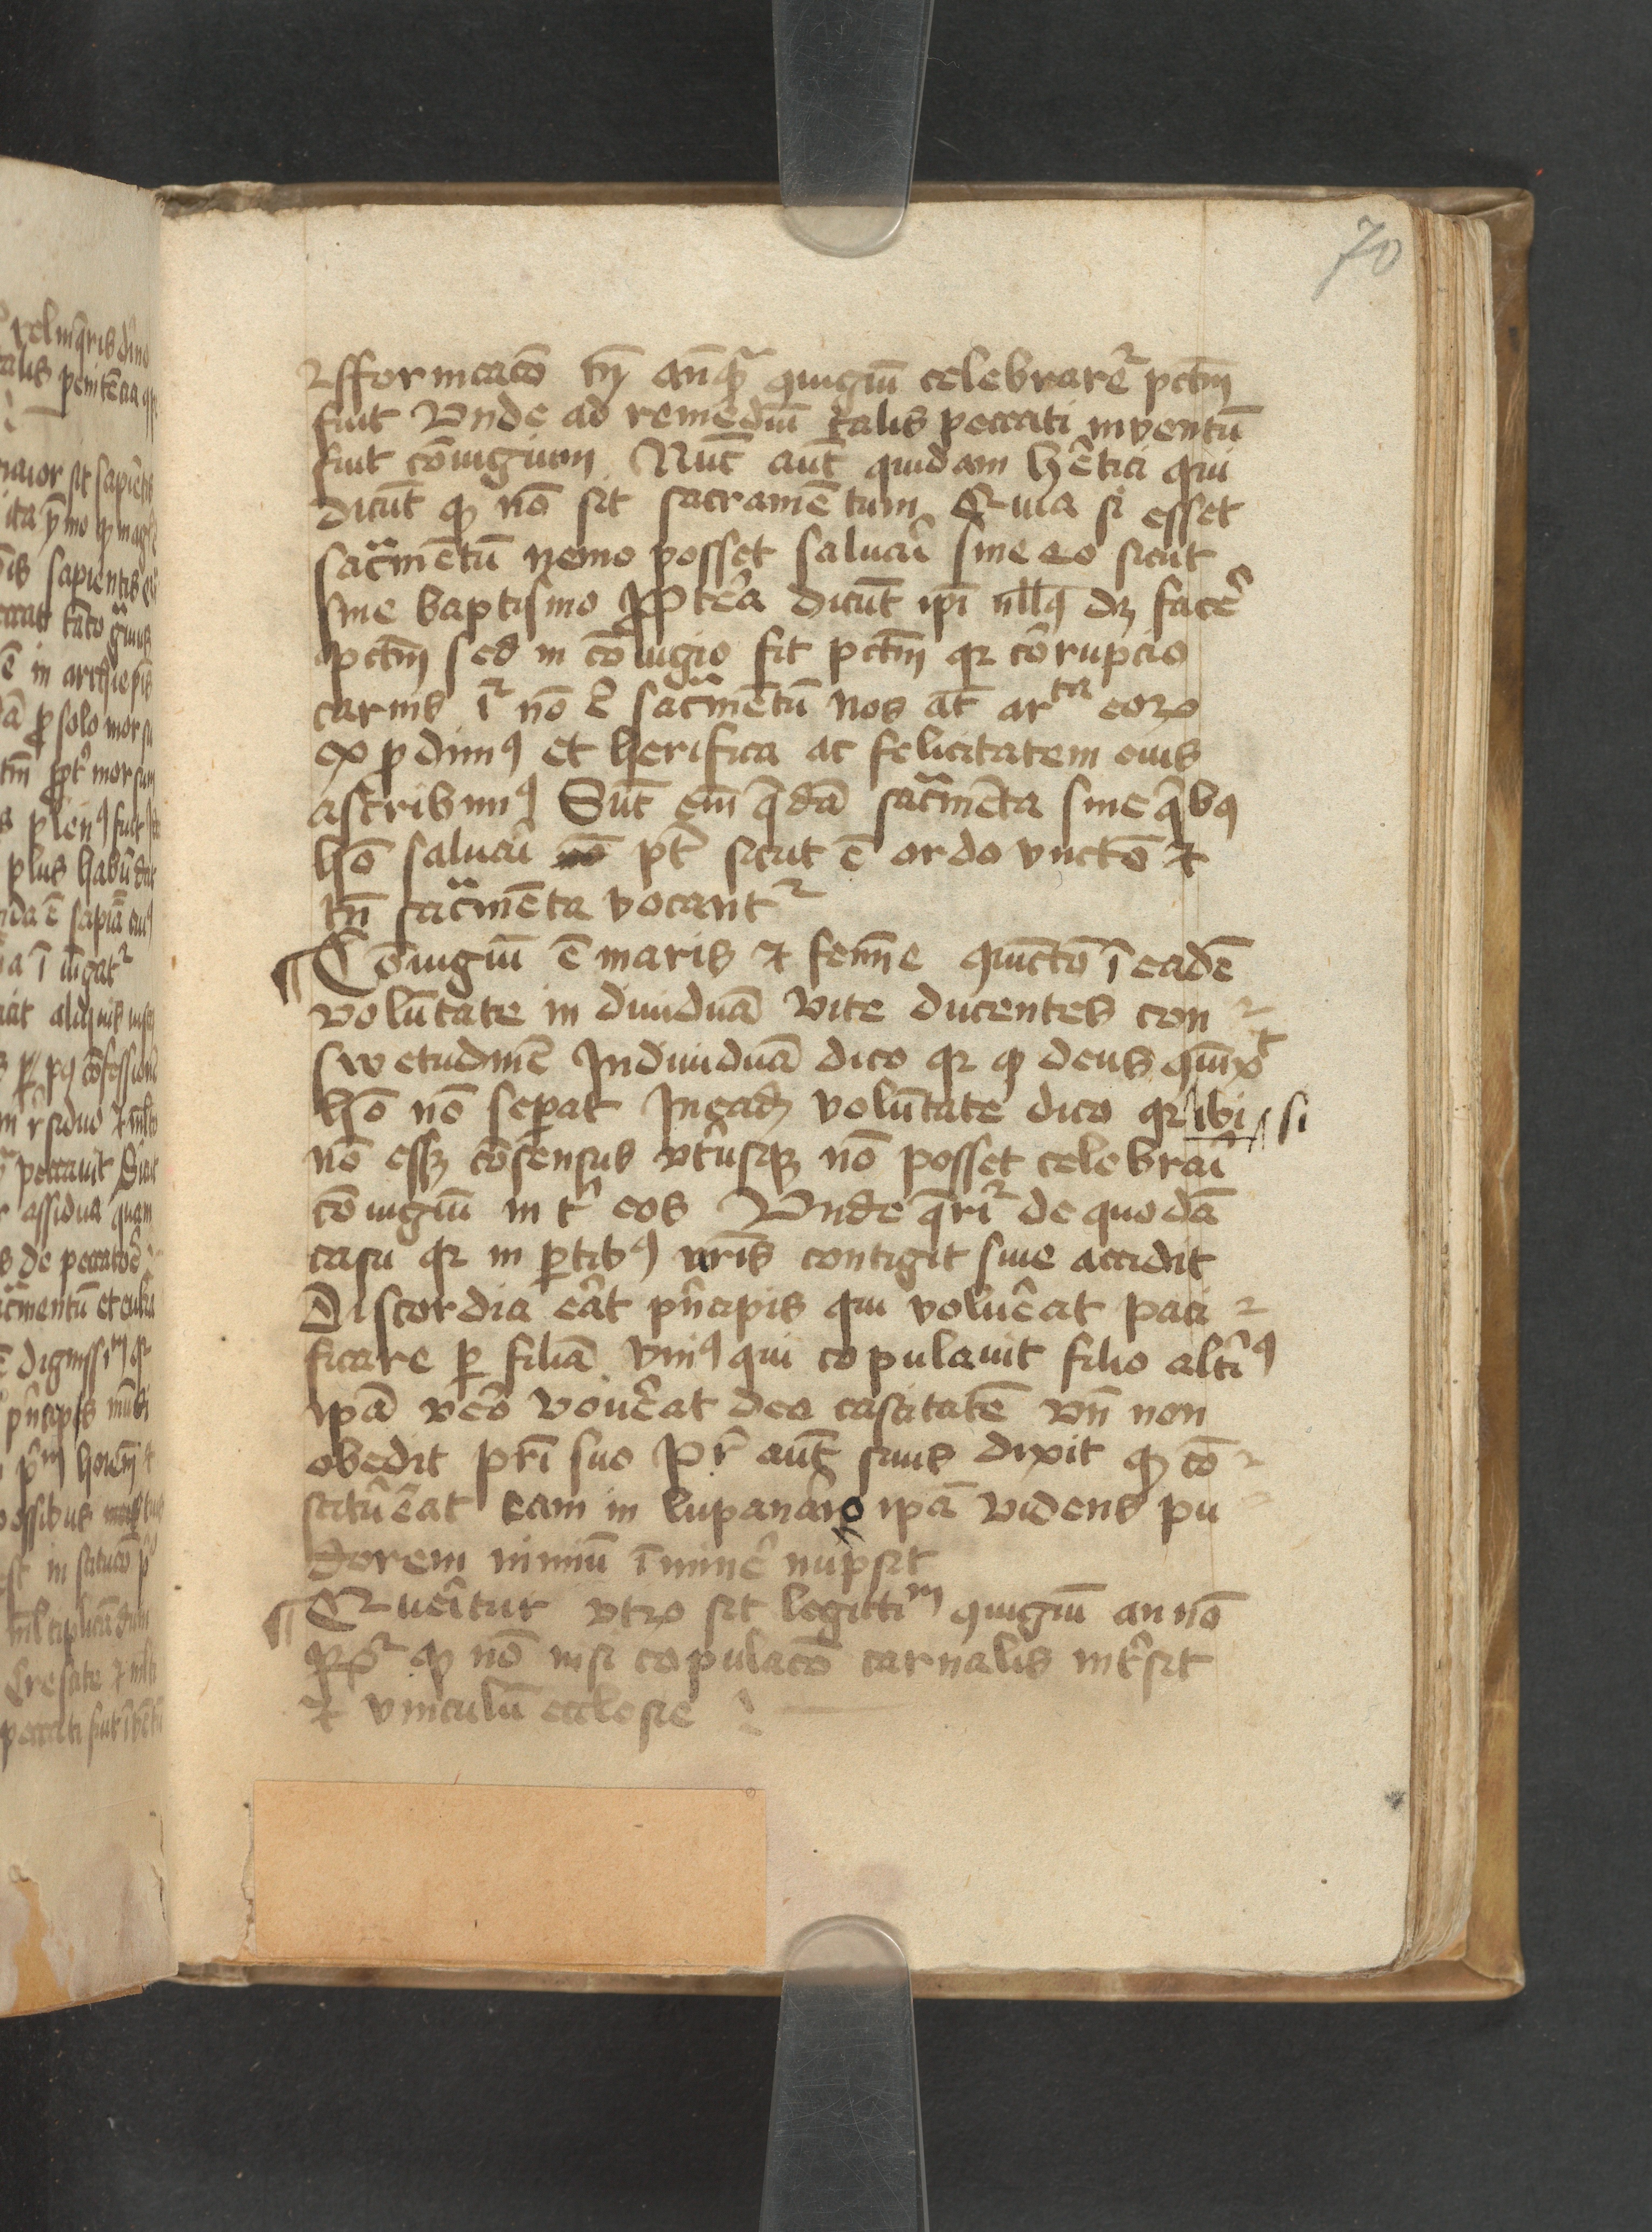 70
⁊ fforincacō tn̄ anq̄ꝫ ꝯiugiū celebrarēt᷑ pctm̄
fuit Vnde ad remediū talis peccati inventū
fuit cōiugium Nūt aūt quidam hētici qui
dicūt ꝙ nō sit sacramētum Quia si esset
sac̄mētū nemo posset saluari sine eo sicut
sine baptismo Pretea dicūt ipi nllꝰ dꝫ facē
pctm̄ sed in cōiugio fit pctm̄ qꝛ corrupcio
carnis ī᷑ nō ē sac̄mētū nos āt ar ta eoꝝ
exprodimꝰ et herifica ac felicitatem euis
ascribimꝰ Sūt em̄ q̄dā sac̄mēta sine qͥbꝰ
hō saluari nō pt̄ sicut ē ordo vnctō ⁊
tn̄ sac̄mēta vocant᷑
¶ Coiugiū ē maris ⁊ femīe ꝯiūctō ī eadē
volūtate in diuiduā vite ducentes con
swetudinē Indiuiduā dico qꝛ ꝙ deus ꝯiūxit
hō nō sepat In eadꝫ volūtate dico qꝛ ibi si
nō essꝫ cōsensus vtriusqꝫ nō posset celebrari
cōiugiū int̄ eos Vnde q̄rit᷑ de quodā
casu qꝛ in ꝑtibꝰ nr̄is contigit siue accidit
Discordia erat pn̄cipis qui voluerat paci
ficare ꝑ filiā vniꝰ qui copulauit filio altiꝰ
ipā vero vouerat deo castitatē vn̄ non
obedit pr̄i suo Pr̄ aūt suus dixit ꝙ cō
stitueat eam in lupanario ipā videns pu
dorem nimiū īminē nupsit
¶ Queritur vtꝝ sit legittim̄ ꝯiugiū an nō
ꝙ nō nisi copulacō carnalis int̄sit
⁊ vinculū ecclesie